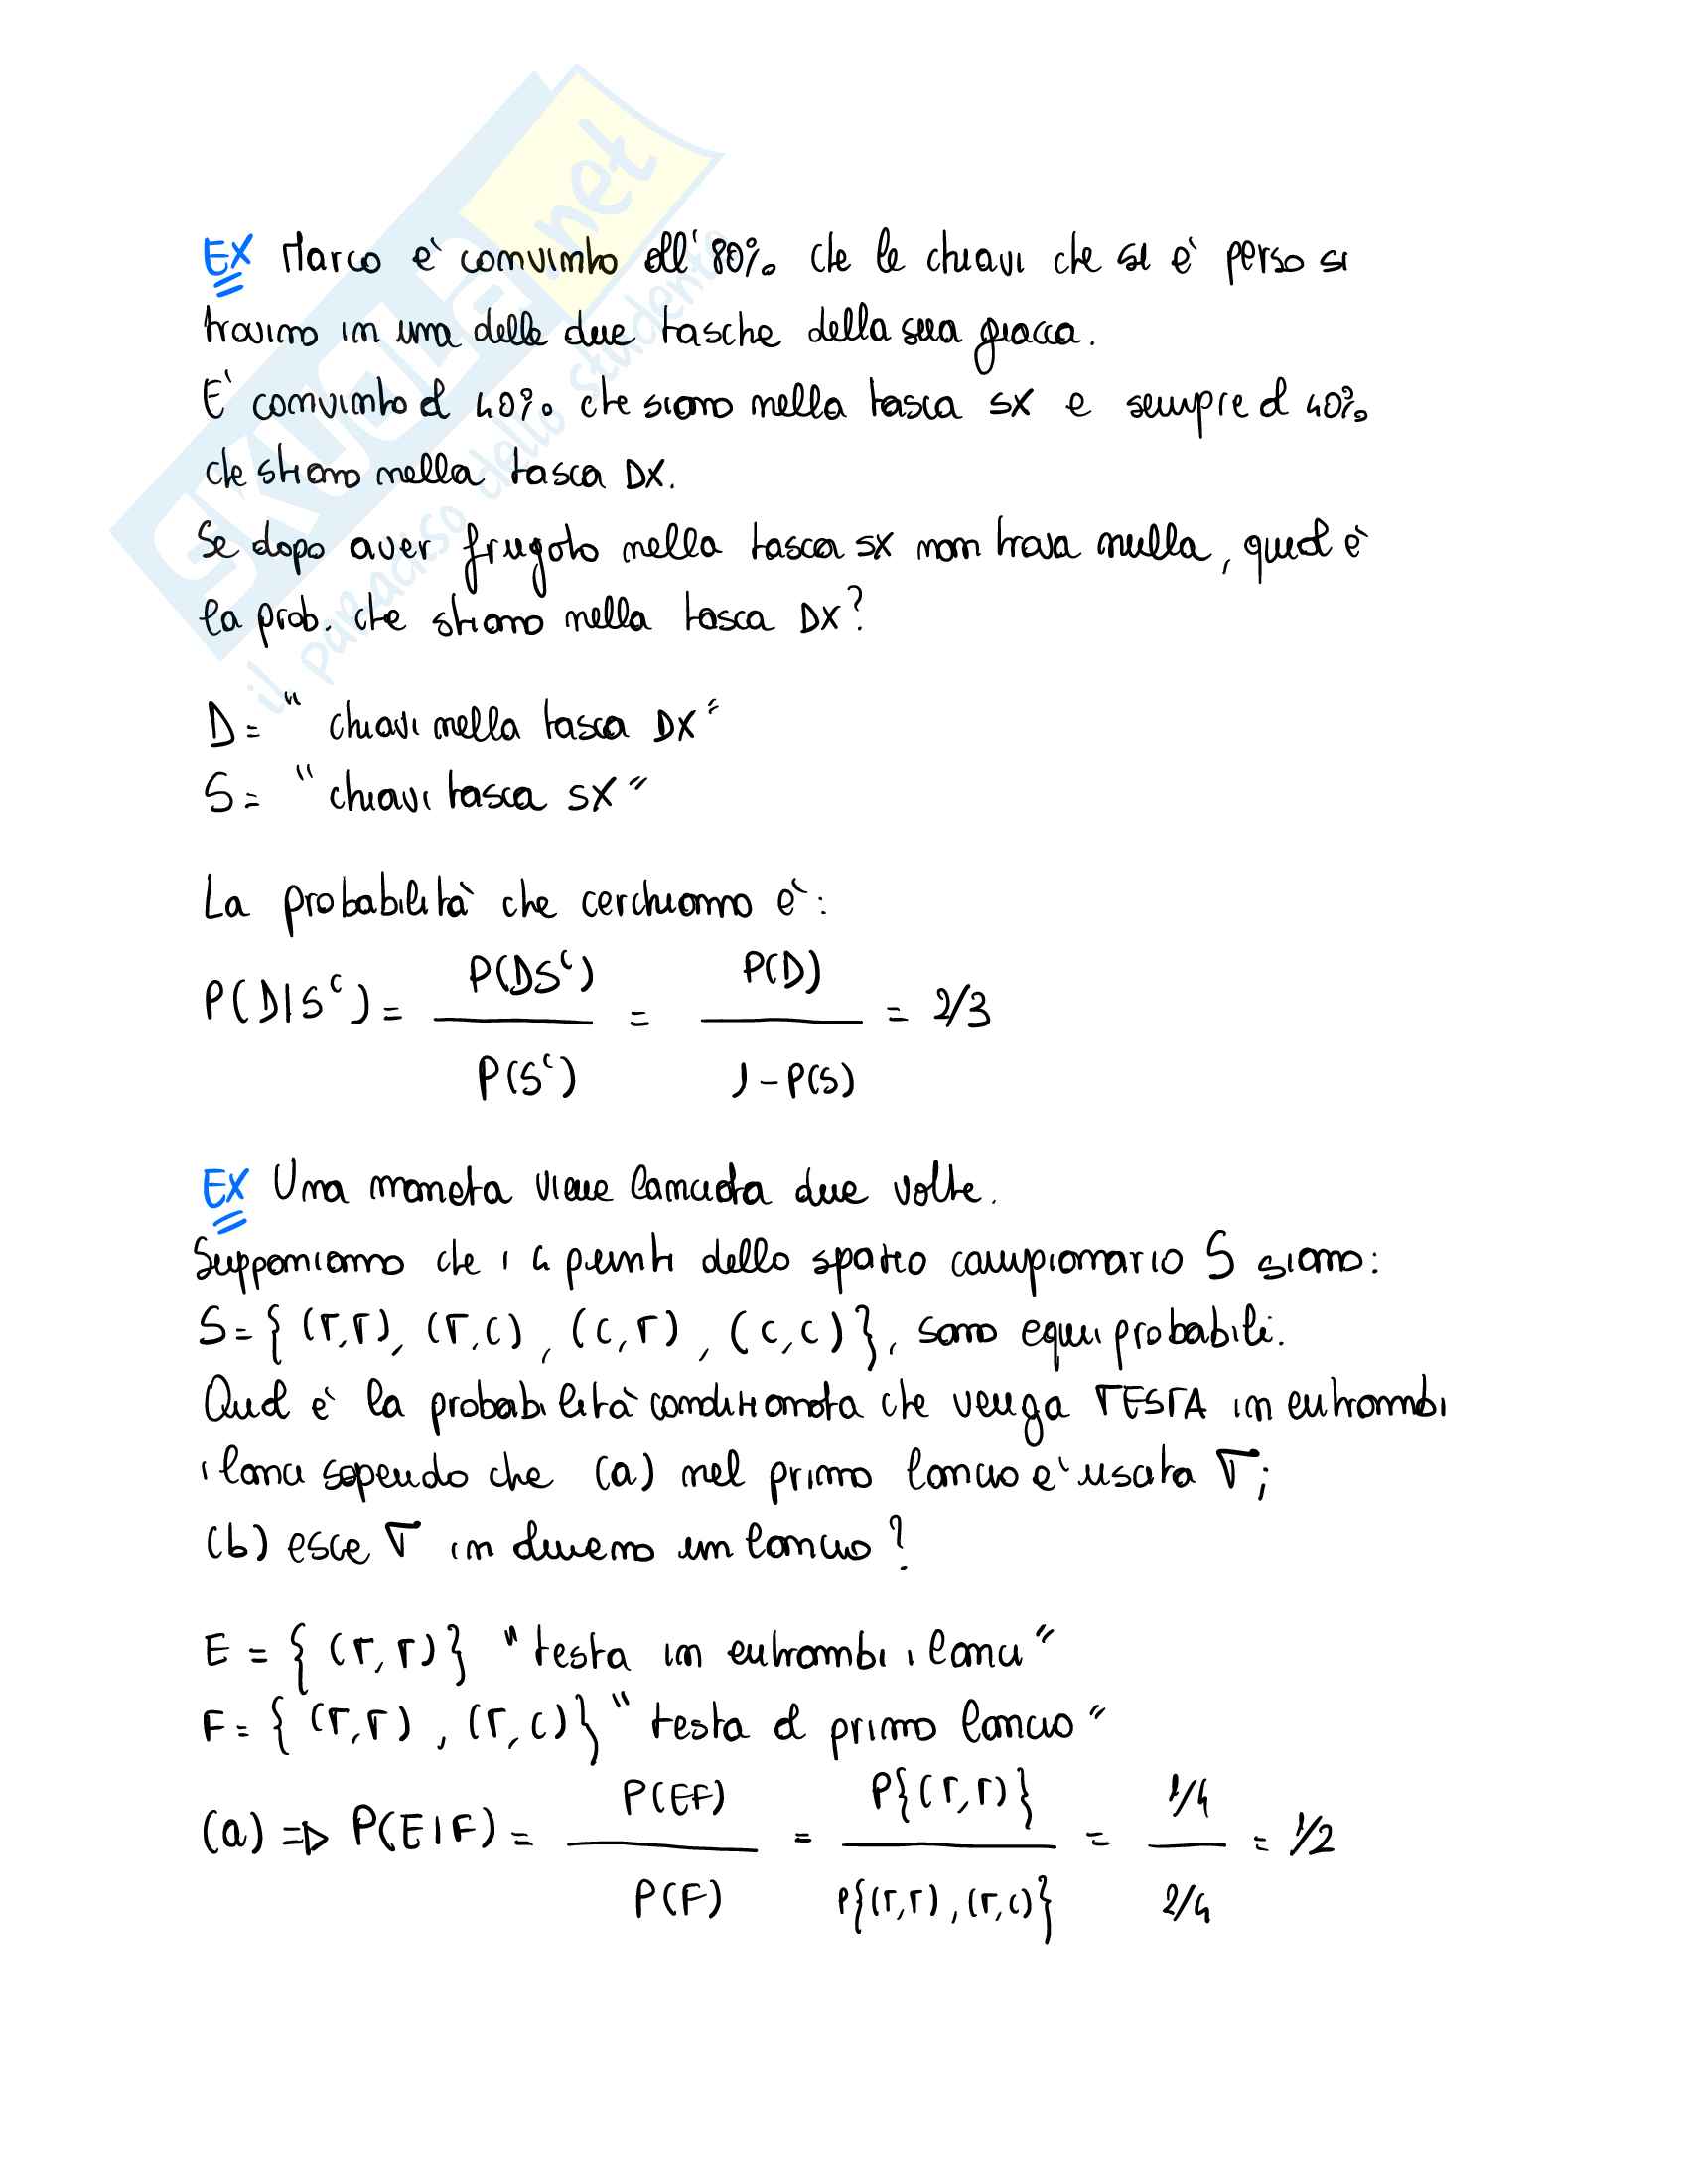 SKUOLA.net
il paradiso dello studente
EX Marco è convinto all'80% che le chiavi che si è perso si
trovino in una delle due tasche della sua giacca.
E' convinto al 40% che siano nella tasca SX e sempre al 40%
che stiano nella tasca DX.
Se dopo aver frugato nella tasca SX non trova nulla, qual è
la prob. che stiano nella tasca DX?
D = "chiavi nella tasca DX"
S = "chiavi tasca SX"
La probabilità che cerchiamo è:
P(D|Sᶜ) = P(DSᶜ) / P(Sᶜ) = P(D) / 1-P(S) = 2/3
EX Una moneta viene lanciata due volte.
Supponiamo che i 4 punti dello spazio campionario S siano:
S = { (T,T), (T,C), (C,T), (C,C) }, sono equiprobabili.
Qual è la probabilità condizionata che venga TESTA in entrambi
i lanci sapendo che (a) nel primo lancio è uscita T;
(b) esce T in almeno un lancio?
E = { (T,T) } "testa in entrambi i lanci"
F = { (T,T), (T,C) } "testa al primo lancio"
(a) => P(E|F) = P(EF) / P(F) = P{(T,T)} / P{(T,T),(T,C)} = 1/4 / 2/4 = 1/2